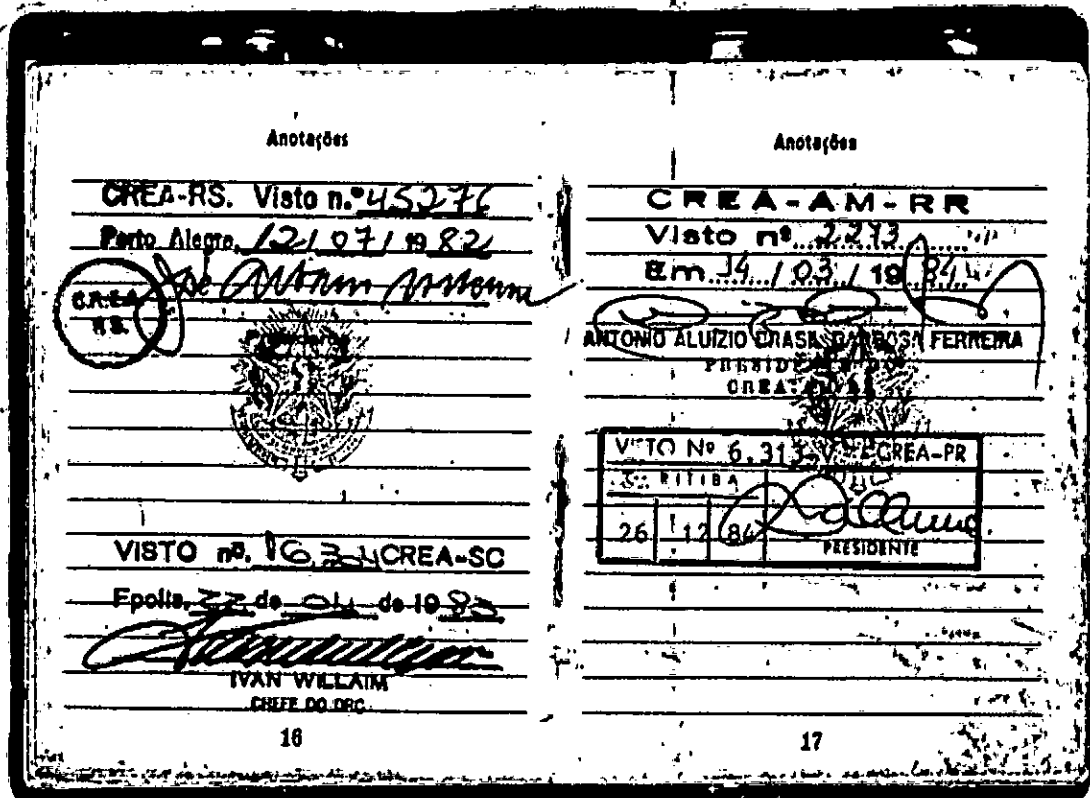 Anotações
CREA-RS. Visto n.º 45276
Porto Alegre, 12/07/1982
C.R.E.A.
RS.
VISTO nº. CREA-SC
Fpolis, de 04 de 19
IVAN WILLAIM
CHEFE DO DRC
16
Anotações
CREA-AM-RR
Visto nº 2273
Em 14/03/1984
ANTONIO ALUIZIO BRASIL BARBOSA FERREIRA
VISTO Nº 6.313-V CREA-PR
CURITIBA
26 12 84
PRESIDENTE
17